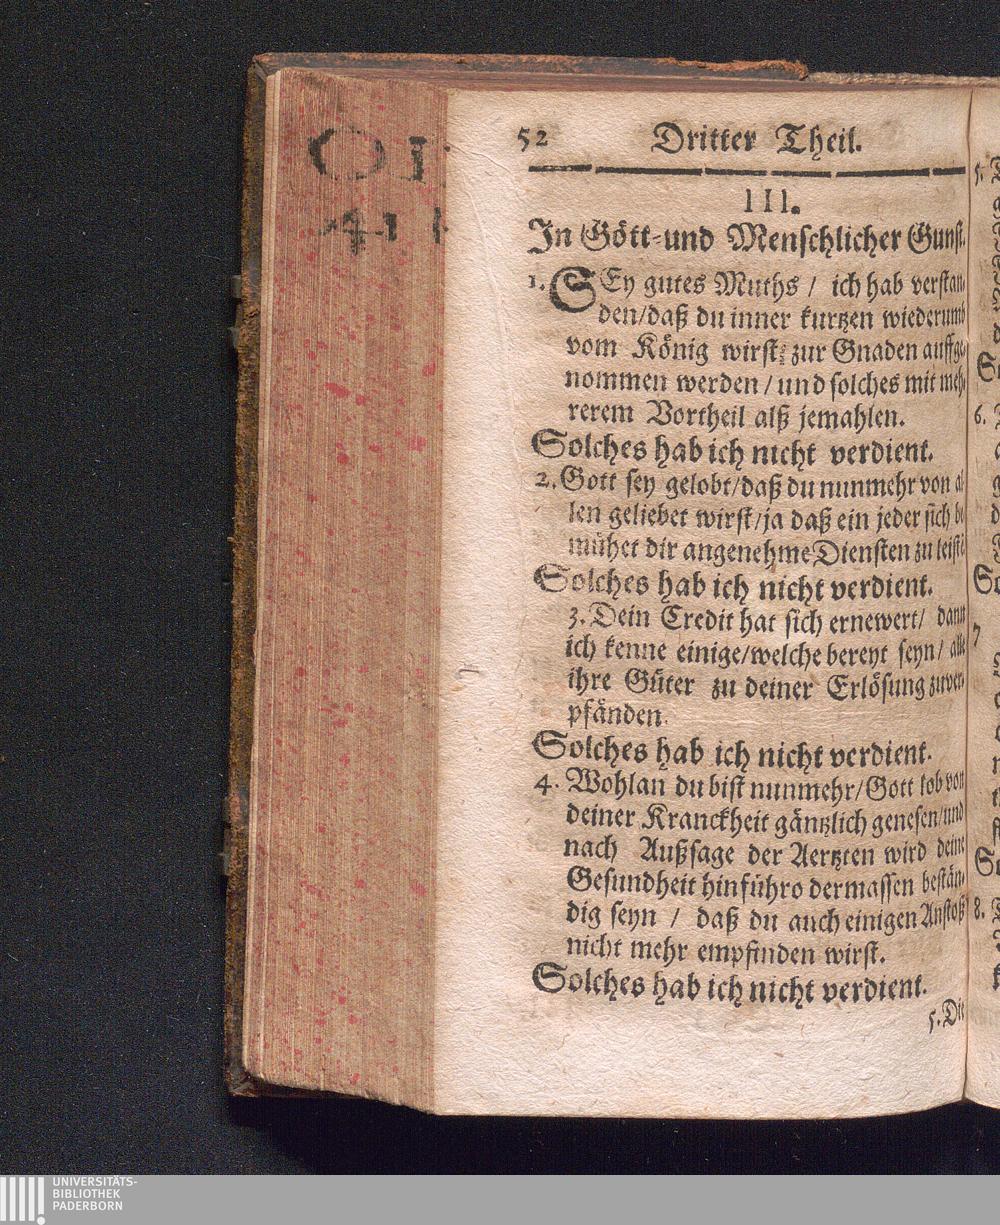 52 Dritter Theil.
III.
In Gött-und Menschlicher Gunst.
1. SEy gutes Muths / ich hab verstan-
den/daß du inner kurtzen wiederumb
vom König wirst zur Gnaden auffge-
nommen werden / und solches mit meh-
rerem Vortheil alß jemahlen.
Solches hab ich nicht verdient.
2. Gott sey gelobt/daß du nunmehr von al-
len geliebet wirst/ja daß ein jeder sich be-
mühet dir angenehme Diensten zu leistē
Solches hab ich nicht verdient.
3. Dein Credit hat sich ernewert/ dann
ich kenne einige/welche bereyt seyn/ alle
ihre Güter zu deiner Erlösung zuver-
pfänden.
Solches hab ich nicht verdient.
4. Wohlan du bist nunmehr/Gott lob von
deiner Kranckheit gäntzlich genesen/und
nach Außsage der Aertzten wird deine
Gesundheit hinführo dermassen bestän-
dig seyn / daß du auch einigen Anstoß
nicht mehr empfinden wirst.
Solches hab ich nicht verdient.
5. Die
5.
6.
7
8.
UNIVERSITÄTS-
BIBLIOTHEK
PADERBORN